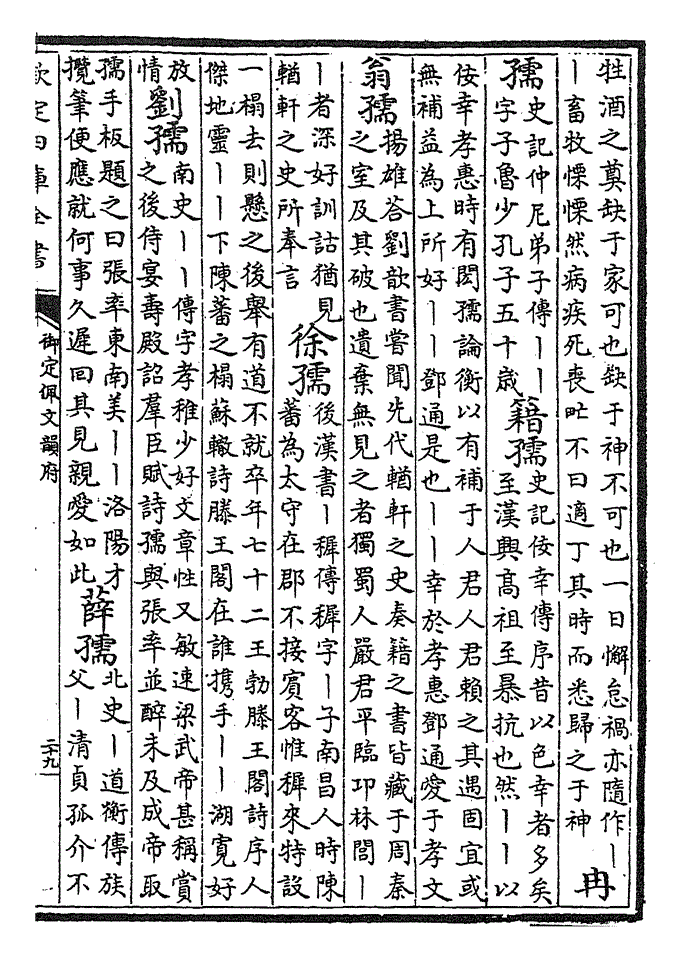 牲酒之奠缺于家可也缺于神不可也一日懈怠禍亦隨作丨
丨畜牧慄慄然病疾死喪甿不曰適丁其時而悉歸之于神
冉
孺
史記仲尼弟子傳丨丨
字子魯少孔子五十歲
籍孺
史記佞幸傳序昔以色幸者多矣
至漢興高祖至暴抗也然丨丨以
佞幸孝惠時有閎孺論衡以有補于人君人君賴之其遇固宜或
無補益為上所好丨丨鄧通是也丨丨幸於孝惠鄧通愛于孝文
翁孺
揚雄答劉歆書嘗聞先代輶軒之史奏籍之書皆藏于周秦
之室及其破也遺棄無見之者獨蜀人嚴君平臨卭林閭丨
丨者深好訓詁猶見
輶軒之史所奉言
徐孺
後漢書丨穉傳穉字丨子南昌人時陳
蕃為太守在郡不接賓客惟穉來特設
一榻去則懸之後舉有道不就卒年七十二王勃滕王閣詩序人
傑地靈丨丨下陳蕃之榻蘇轍詩滕王閣在誰攜手丨丨湖寬好
放
情
劉孺
南史丨丨傳字孝稚少好文章性又敏速梁武帝甚稱賞
之後侍宴壽殿詔羣臣賦詩孺與張率並醉未及成帝取
孺手板題之曰張率東南美丨丨洛陽才
攬筆便應就何事久遲回其見親愛如此
薛孺
北史丨道衡傳族
父丨清貞孤介不
欽定四庫全書
御定佩文韻府
二十九